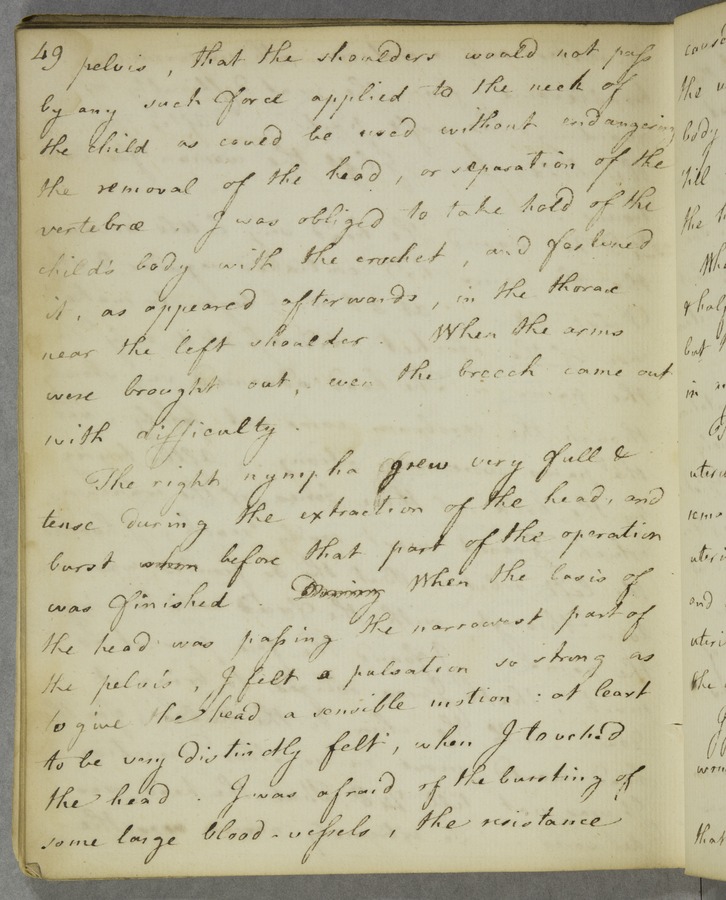 49 pelvis, that the shoulders would not pass
by any such force applied to the neck of
the child as could be used without endangering
the removal of the head, or separation of the
vertebræ. I was obliged to take hold of the
child's body with the crochet, and fastened
it, as appeared afterwards, in the thorax
near the left shoulder. When the arms
were brought out, even the breech came out
with difficulty.
The right nympha grew very full &
tense during the extraction of the head, and
burst when before that part of the operation
was finished. During When the basis of
the head was passing the narrowest part of
the pelvis, I felt a pulsation so strong as
to give the head a sensible motion: at least
to be very distinctly felt, when I touched
the head. I was afraid of the bursting of
some large blood-vessels, the resistance
caused
the
body
till
the
& half
but
in
and
the
that